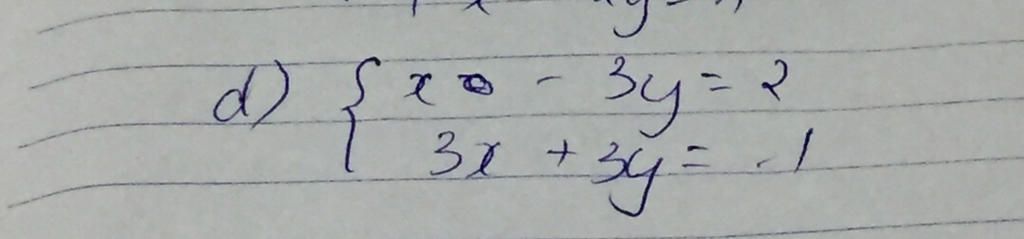 d) { x - 3y = 2
3x + 3y = -1